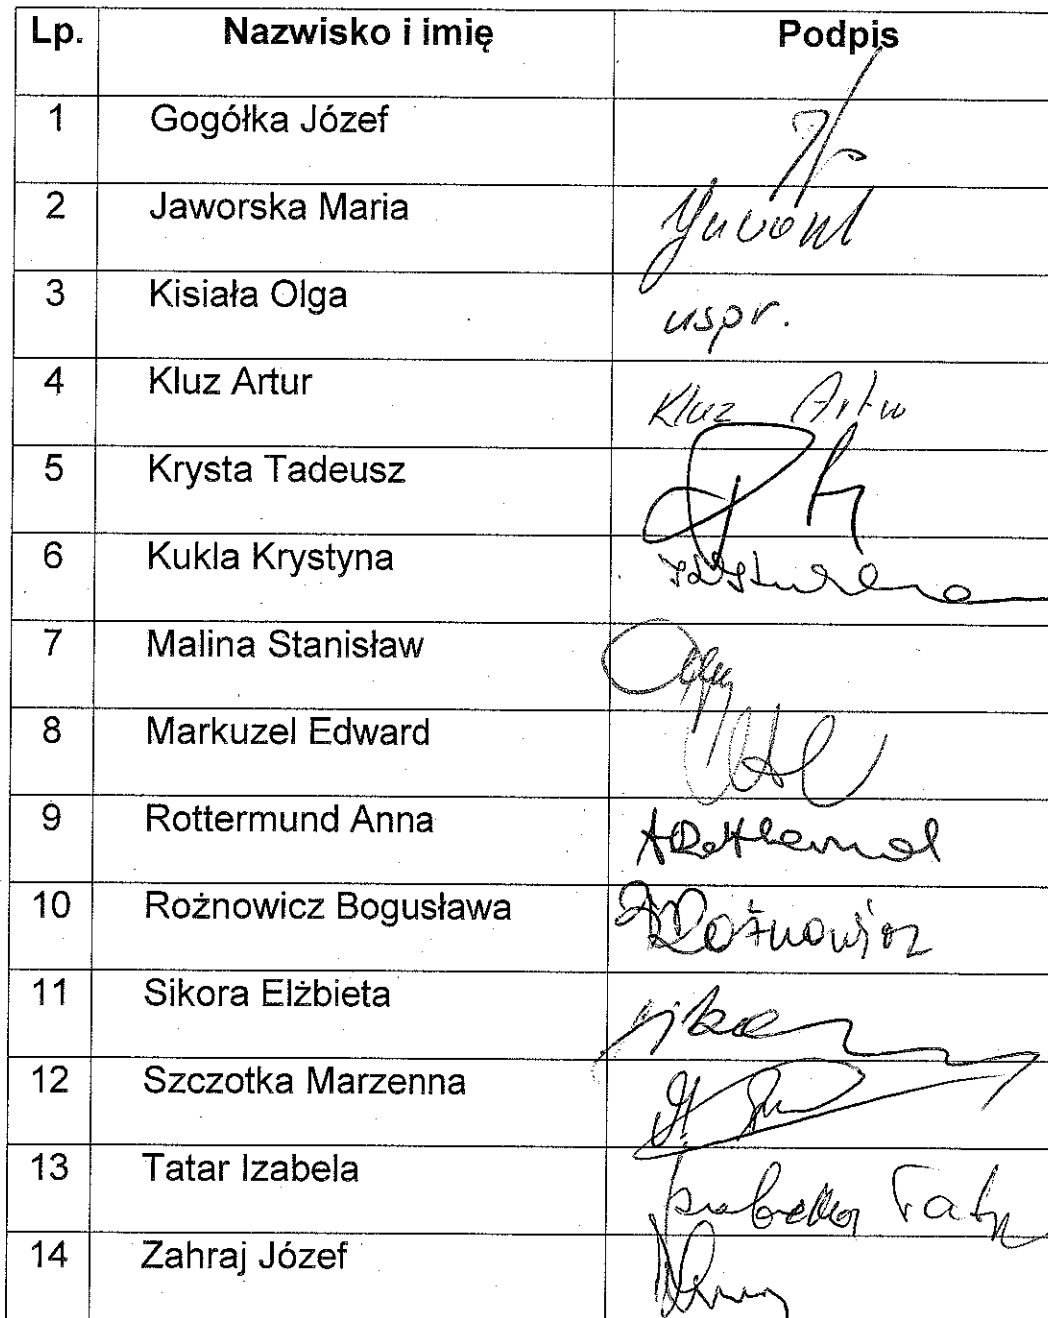 Lp. Nazwisko i imię Podpis
1 Gogółka Józef
2 Jaworska Maria
3 Kisiała Olga uspr.
4 Kluz Artur Kluz Artur
5 Krysta Tadeusz
6 Kukla Krystyna
7 Malina Stanisław
8 Markuzel Edward
9 Rottermund Anna
10 Rożnowicz Bogusława Rożnowicz
11 Sikora Elżbieta
12 Szczotka Marzenna
13 Tatar Izabela Izabela Tatar
14 Zahraj Józef